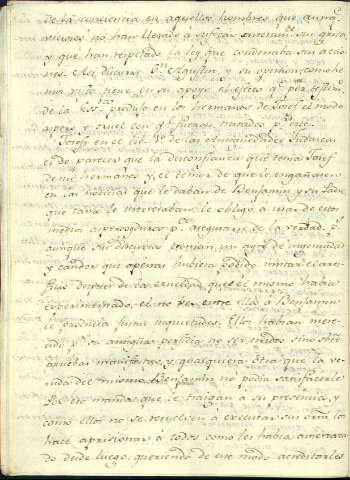 de la conciencia en aquellos hombres que aunq.
viciosos no han llegado a sufocar enteram.te sus gritos
y que han respetado la ley que condenaba sus accio
nes. Asi discurre S.n Agustin, y su opinion, como he
mos visto tiene en su apoyo el efecto q.e por testim.
de la Es.ra produjo en los hermanos de Josef el modo
aspero y cruel con q.e fueron tratados p.r este.
Josef en el lib. 2.o de las Antiguedades Judaicas
es de parecer que la desconfianza que tenia Josef
de sus hermanos y, el temor de que le engañasen
en las noticias que le daban de Benjamin y su Padre
que tanto le interesaban le obligó a usar de estos
medios p.a asegurarse de la verdad. p.s
aunque sus discursos tenian un ayre de ingenuidad
y candor que apenas hubiera podido imitar el arti-
ficio despues de la crueldad que el mismo habia
experimentado, el no ver entre ellos a Benjamin
le producia justas inquietudes. Ellos habian mere-
cido p.r su antigua perfidia no ser creidos sino sobre
pruebas manifiestas, y qualquiera otra que la ve-
nida del mismo Benjamin no podia satisfacerle
Les manda que le traigan a su presencia, y
como ellos no se resuelven a executar su orn, los
hace aprisionar a todos como les habia amenaza
do desde luego, queriendo de este modo acreditarles